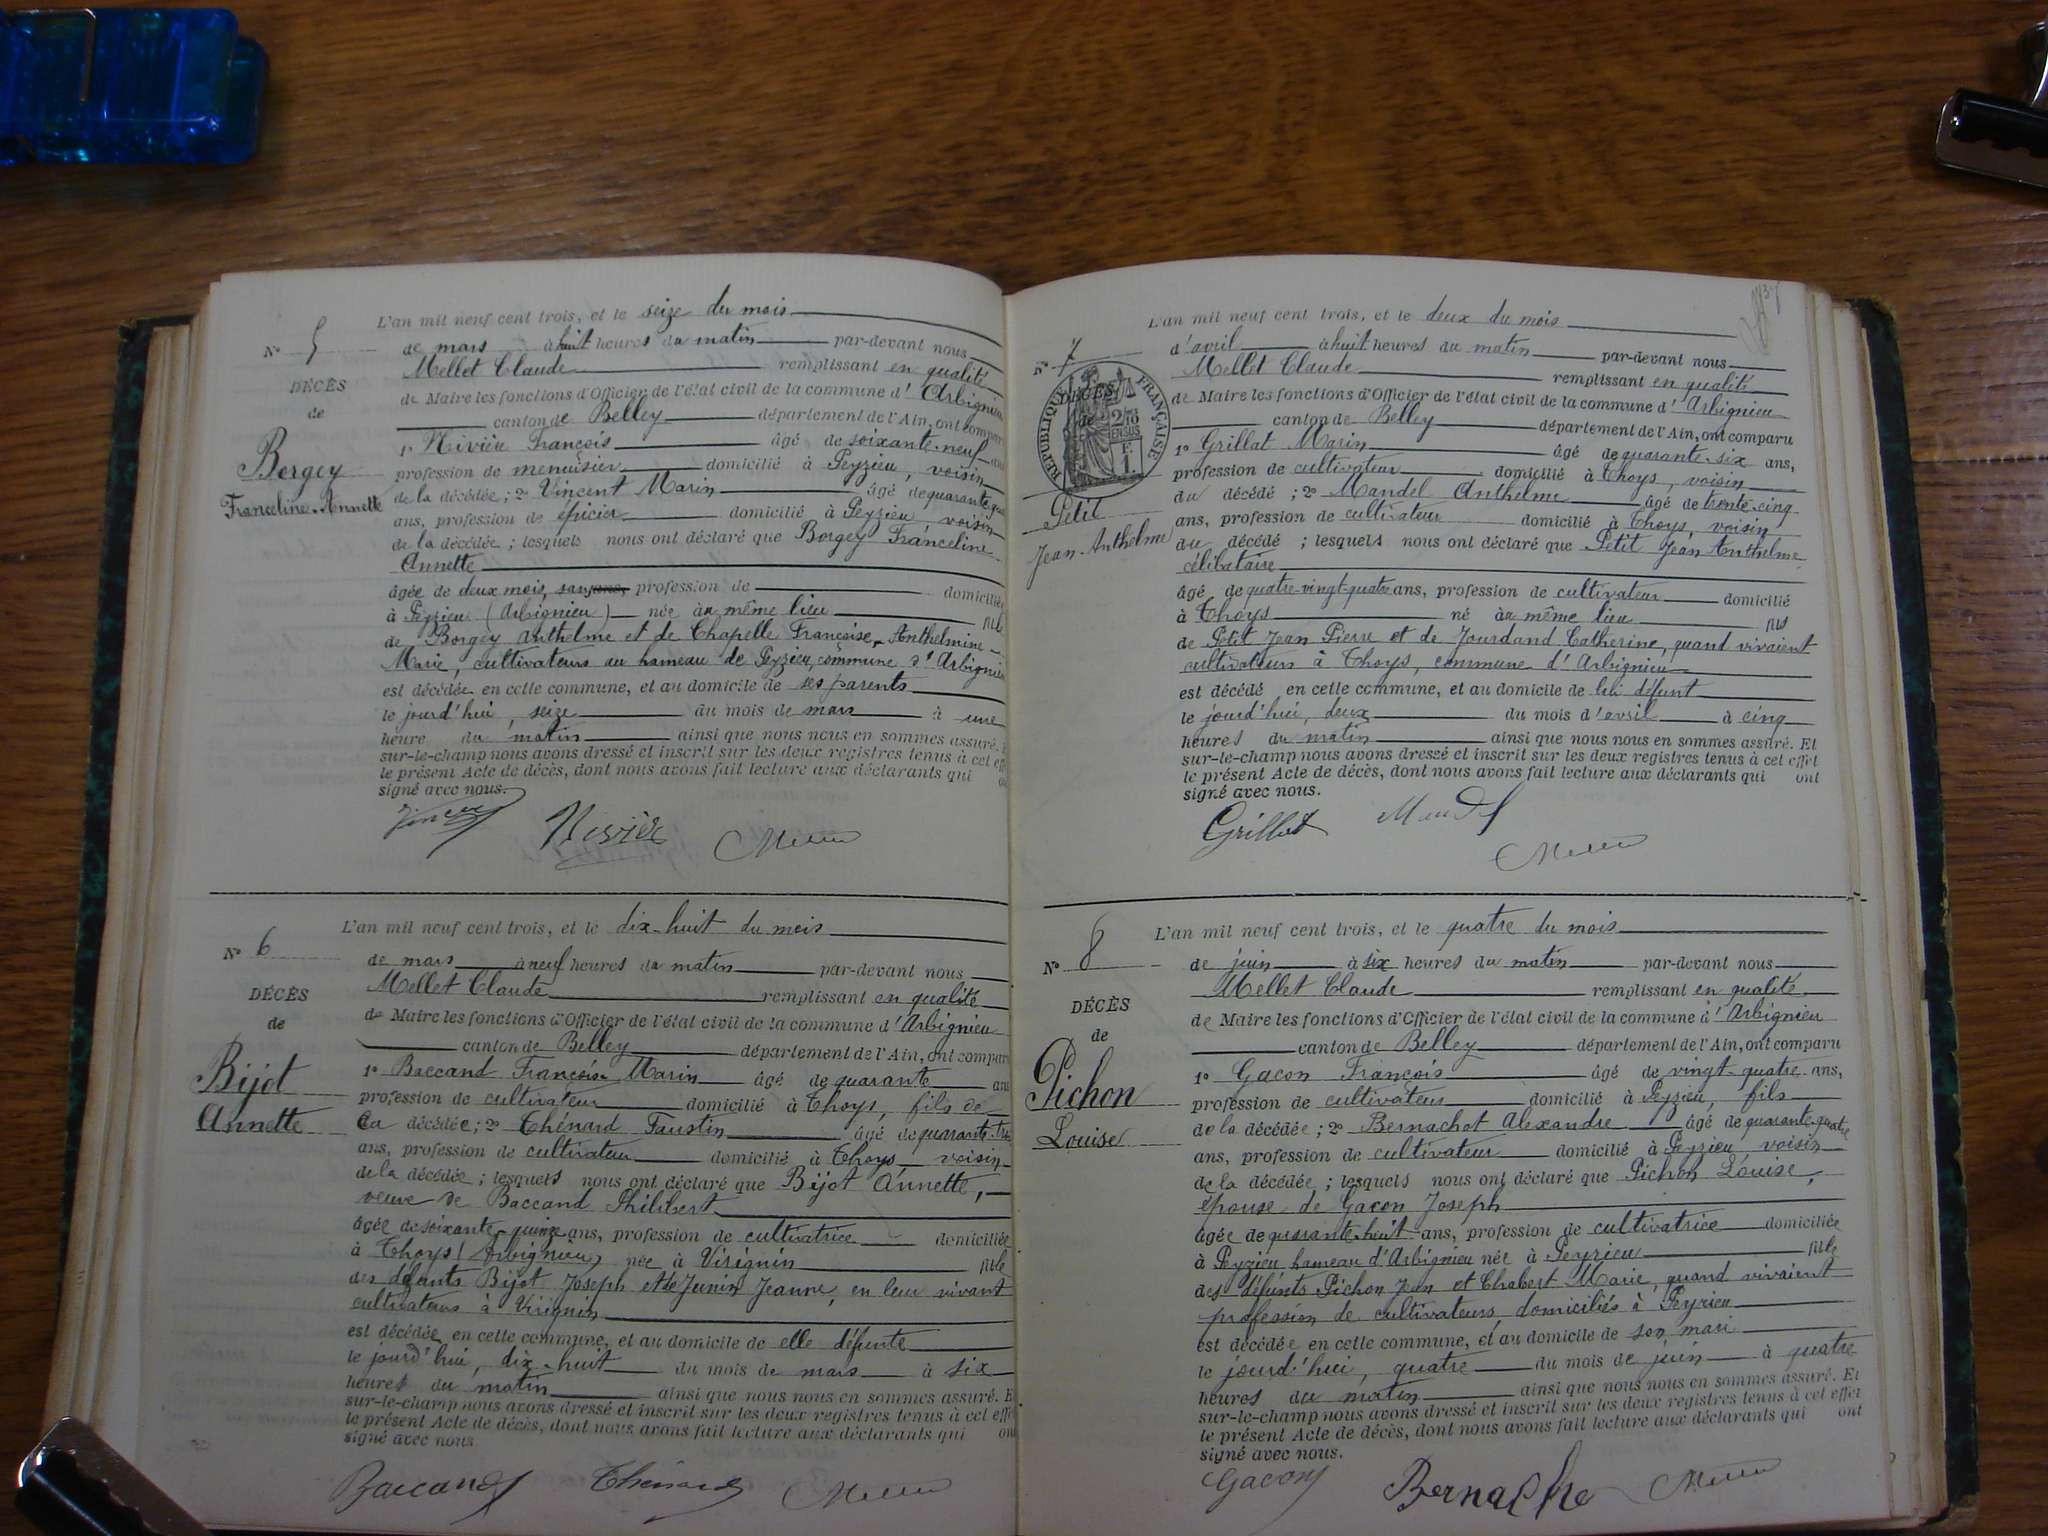 L'an mil neuf cent trois, et le seize du mois
N° 5
de mars à huit heures du matin par-devant nous
Mellet Claude remplissant en qualité
DÉCÈS
de Maire les fonctions d'Officier de l'état civil de la commune d'Arbignieu
de
canton de Belley département de l'Ain, ont comparu
1° Nivière François âgé de soixante-neuf ans
Borgey
profession de menuisier domicilié à Peyzieu, voisin
Franceline-Annette
de la décédée ; 2° Vincent Marin âgé de quarante
ans, profession de épicier domicilié à Peyzieu voisin
de la décédée ; lesquels nous ont déclaré que Borgey Franceline
Annette
âgée de deux mois, sans profession de domiciliée
à Peyzieu (Arbignieu) née au même lieu fille
de Borgey Anthelme et de Chapelle Françoise-Anthelmine-
Marie, cultivateurs au hameau de Peyzieu, commune d'Arbignieu
est décédée en cette commune, et au domicile de ses parents
le jourd'hui, seize du mois de mars à une
heure du matin ainsi que nous nous en sommes assuré. Et
sur-le-champ nous avons dressé et inscrit sur les deux registres tenus à cet effet
le présent Acte de décès, dont nous avons fait lecture aux déclarants qui ont
signé avec nous.
Vincent Nivière Mellet
L'an mil neuf cent trois, et le dix-huit du mois
N° 6
de mars à neuf heures du matin par-devant nous
Mellet Claude remplissant en qualité
DÉCÈS
de Maire les fonctions d'Officier de l'état civil de la commune d'Arbignieu
de
canton de Belley département de l'Ain, ont comparu
Bijot
1° Baccand François Marin âgé de quarante ans
profession de cultivateur domicilié à Thoys, fils de
Annette
la décédée ; 2° Thénard Faustin âgé de quarante-trois
ans, profession de cultivateur domicilié à Thoys voisin
de la décédée ; lesquels nous ont déclaré que Bijot Annette,
veuve de Baccand Philibert
âgée de soixante-quinze ans, profession de cultivatrice domiciliée
à Thoys (Arbignieu) née à Virignin fille
des défunts Bijot Joseph et de Junin Jeanne, en leur vivant
cultivateurs à Virignin
est décédée en cette commune, et au domicile de elle défunte
le jourd'hui, dix-huit du mois de mars à six
heures du matin ainsi que nous nous en sommes assuré. Et
sur-le-champ nous avons dressé et inscrit sur les deux registres tenus à cet effet
le présent Acte de décès, dont nous avons fait lecture aux déclarants qui ont
signé avec nous
Baccand Thénard Mellet
L'an mil neuf cent trois, et le deux du mois
N° 7
d'avril à huit heures du matin par-devant nous
Mellet Claude remplissant en qualité
DÉCÈS
de Maire les fonctions d'Officier de l'état civil de la commune d'Arbignieu
de
RÉPUBLIQUE FRANÇAISE
canton de Belley département de l'Ain, ont comparu
1° Grillat Marin âgé de quarante-six ans,
profession de cultivateur domicilié à Thoys, voisin
Petit
du décédé ; 2° Mandel Anthelme âgé de trente-cinq
Jean-Anthelme
ans, profession de cultivateur domicilié à Thoys voisin
du décédé ; lesquels nous ont déclaré que Petit Jean Anthelme
célibataire
âgé de quatre-vingt-quatre ans, profession de cultivateur domicilié
à Thoys né au même lieu fils
de Petit Jean Pierre et de Jourdand Catherine, quand vivaient
cultivateurs à Thoys, commune d'Arbignieu
est décédé en cette commune, et au domicile de lui défunt
le jourd'hui, deux du mois d'avril à cinq
heures du matin ainsi que nous nous en sommes assuré. Et
sur-le-champ nous avons dressé et inscrit sur les deux registres tenus à cet effet
le présent Acte de décès, dont nous avons fait lecture aux déclarants qui ont
signé avec nous.
Grillat Mandel
Mellet
L'an mil neuf cent trois, et le quatre du mois
N° 8
de juin à six heures du matin par-devant nous
Mellet Claude remplissant en qualité
DÉCÈS
de Maire les fonctions d'Officier de l'état civil de la commune d'Arbignieu
de
canton de Belley département de l'Ain, ont comparu
Pichon
1° Gacon François âgé de vingt-quatre ans,
profession de cultivateur domicilié à Peyzieu, fils
Louise
de la décédée ; 2° Bernachot Alexandre âgé de quarante-quatre
ans, profession de cultivateur domicilié à Peyzieu voisin
de la décédée ; lesquels nous ont déclaré que Pichon Louise,
épouse de Gacon Joseph
âgée de quarante-huit ans, profession de cultivatrice domiciliée
à Peyzieu hameau d'Arbignieu née à Peyzieu fille
des défunts Pichon Jean et Chabert Marie, quand vivaient
profession de cultivateurs, domiciliés à Peyzieu
est décédée en cette commune, et au domicile de son mari
le jourd'hui, quatre du mois de juin à quatre
heures du matin ainsi que nous nous en sommes assuré. Et
sur-le-champ nous avons dressé et inscrit sur les deux registres tenus à cet effet
le présent Acte de décès, dont nous avons fait lecture aux déclarants qui ont
signé avec nous.
Gacon Bernacho Mellet